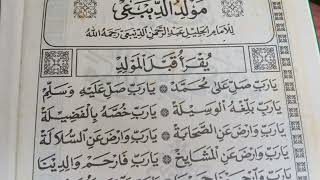 مَوْلِدُ الدِّيْبَعِيْ
لِلْإِمَامِ الْجَلِيْلِ عَبْدِ الرَّحْمٰنِ الدِّيْبَعِيْ رَحِمَهُ اللهُ
يُقْرَأُ قَبْلَ الْمَوْلِدِ
يَارَبِّ صَلِّ عَلٰى مُحَمَّدْ ۞ يَارَبِّ صَلِّ عَلَيْهِ وَسَلِّمْ
يَارَبِّ بَلِّغْهُ الْوَسِيْلَةْ ۞ يَارَبِّ خُصَّهُ بِالْفَضِيْلَةْ
يَارَبِّ وَارْضَ عَنِ الصَّحَابَةْ ۞ يَارَبِّ وَارْضَ عَنِ السُّلَالَةْ
يَارَبِّ وَارْضَ عَنِ الْمَشَايِخْ ۞ يَارَبِّ فَارْحَمْ وَالِدِيْنَا